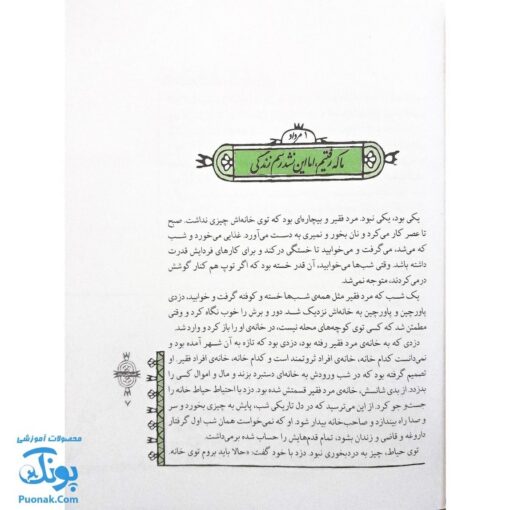 ۱ مرداد
ما که رفتیم، اما این نشد رسم زندگی
یکی بود، یکی نبود. مرد فقیر و بیچاره‌ای بود که توی خانه‌اش چیزی نداشت. صبح
تا عصر کار می‌کرد و نان بخور و نمیری به دست می‌آورد. غذایی می‌خورد و شب
که می‌شد، می‌گرفت و می‌خوابید تا خستگی درکند و برای کارهای فردایش قدرت
داشته باشد. وقتی شب‌ها می‌خوابید، آن قدر خسته بود که اگر توپ هم کنار گوشش
درمی‌کردند، متوجه نمی‌شد.
یک شب که مرد فقیر مثل همه‌ی شب‌ها خسته و کوفته گرفت و خوابید، دزدی
پاورچین و پاورچین به خانه‌اش نزدیک شد. دور و برش را خوب نگاه کرد و وقتی
مطمئن شد که کسی توی کوچه‌های محله نیست، در خانه‌ی او را باز کرد و وارد شد.
دزدی که به خانه‌ی مرد فقیر رفته بود، دزدی بود که تازه به آن شهر آمده بود و
نمی‌دانست کدام خانه، خانه‌ی افراد ثروتمند است و کدام خانه، خانه‌ی افراد فقیر. او
تصمیم گرفته بود که در شب ورودش به خانه‌ای دستبرد بزند و مال و اموال کسی را
بدزدد. از بدی شانسش، خانه‌ی مرد فقیر قسمتش شده بود. دزد با احتیاط حیاط خانه را
جست‌وجو کرد. از این می‌ترسید که در دل تاریکی شب، پایش به چیزی بخورد و سر
و صدا راه بیندازد و صاحب‌خانه بیدار شود. او که نمی‌خواست همان شب اول گرفتار
داروغه و قاضی و زندان بشود، تمام قدم‌هایش را حساب شده برمی‌داشت.
توی حیاط، چیز به دردبخوری نبود. دزد با خود گفت: «حالا باید بروم توی خانه.
۷
محصولات آموزشی
پونک
Puonak.Com